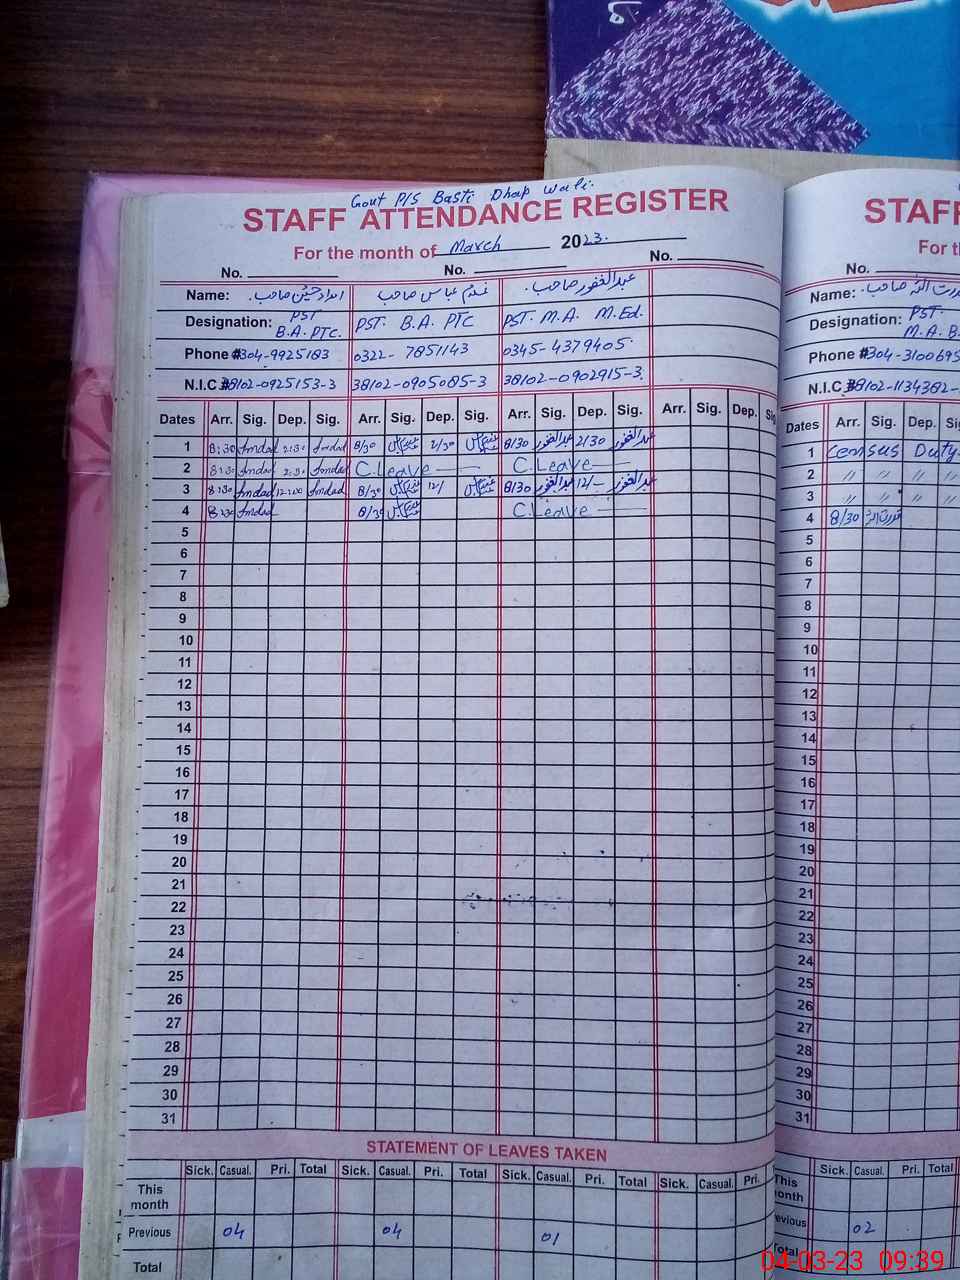 Govt P/S Basti Dhap Wali.
STAFF ATTENDANCE REGISTER
For the month of March 2023.
No. No. No.
Name: امداد حسین صاحب. غلام عباس صاحب عبدالغفور صاحب.
Designation: PST B.A. PTC. PST. B.A. PTC PST. M.A. M.Ed.
Phone # 304-9925183 0322-7851143 0345-4379405.
N.I.C.# 38102-0925153-3 38102-0905085-3 38102-0902915-3.
Dates Arr. Sig. Dep. Sig. Arr. Sig. Dep. Sig. Arr. Sig. Dep. Sig. Arr. Sig. Dep. Sig
1 8:30 Imdad 2:30 Imdad 8/30 غلام عباس 2/30 غلام عباس 8/30 عبدالغفور 2/30 عبدالغفور
2 8:30 Imdad 2:30 Imdad C.Leave C.Leave
3 8:30 Imdad 12:00 Imdad 8/30 غلام عباس 12/ غلام عباس 8/30 عبدالغفور 12/- عبدالغفور
4 8:30 Imdad 8/30 غلام عباس C.Leave
5
6
7
8
9
10
11
12
13
14
15
16
17
18
19
20
21
22
23
24
25
26
27
28
29
30
31
STATEMENT OF LEAVES TAKEN
Sick. Casual. Pri. Total Sick. Casual. Pri. Total Sick. Casual. Pri. Total Sick. Casual. Pri.
This month
Previous 04 04 01
Total
STAFF
For th
No.
Name: صاحب.
Designation: PST. M.A. B.
Phone # 304-3100695
N.I.C.# 38102-1134382-
Dates Arr. Sig. Dep. Sig
1 Census Duty
2 〃 〃 〃 〃
3 〃 〃 〃 〃
4 8/30
5
6
7
8
9
10
11
12
13
14
15
16
17
18
19
20
21
22
23
24
25
26
27
28
29
30
31
Sick. Casual. Pri. Total
This month
evious 02
Total
04-03-23 09:39